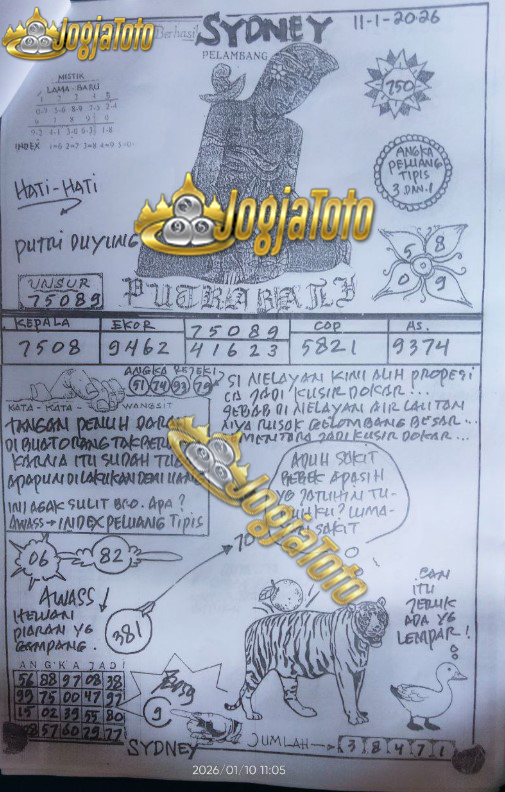 JogjaToto
Berhasil
SYDNEY
11-1-2026
PELAMBANG
MISTIK
LAMA-BARU
1 2 3 4 5
6 1 8 9 0
INDEX 1=6 2=7 3=8 4=9 5=0
750
ANGKA
PELUANG
TIPIS
3 DAN 1
HATI-HATI
JogjaToto
PUTRI DUYUNG
5 8
0 9
UNSUR
75089
PUTRA BALI
KEPALA EKOR 75089 COP AS.
7508 9462 41623 5821 9374
ANGKA REJEKI
51 74 93 79
KATA-KATA WANGSIT
SI NELAYAN KINI ALIH PROPESI
IA JADI KUSIR DOKAR...
SEBAB DI NELAYAN AIR LAUTAN
NYA RUSAK GELOMBANG BESAR...
SEMENTARA JADI KUSIR DOKAR...
TANGAN PENUH
DI BUAT ORANG TAK
KARNIA ITU SUDAH
APAPUN DI LAKUKAN DEMI UANG
INI AGAK SULIT BRO. APA?
AWASS → INDEX PELUANG TIPIS
ADUH SAKIT
BEBEK APASIH
YG JATUHIN TU-
BUHKU? LUMA-
SAKIT
JogjaToto
06
82
70
AWASS
HEWAN
PIARAN YG
GAMPANG.
381
ITU
JERUK
ADA YG
LEMPAR!
ANGKA JADI
56 88 97 08 38
99 75 00 47 97
15 02 39 55 80
28 57 60 79 77
9
SYDNEY
JUMLAH → 3 8 4 7 1
2026/01/10 11:05